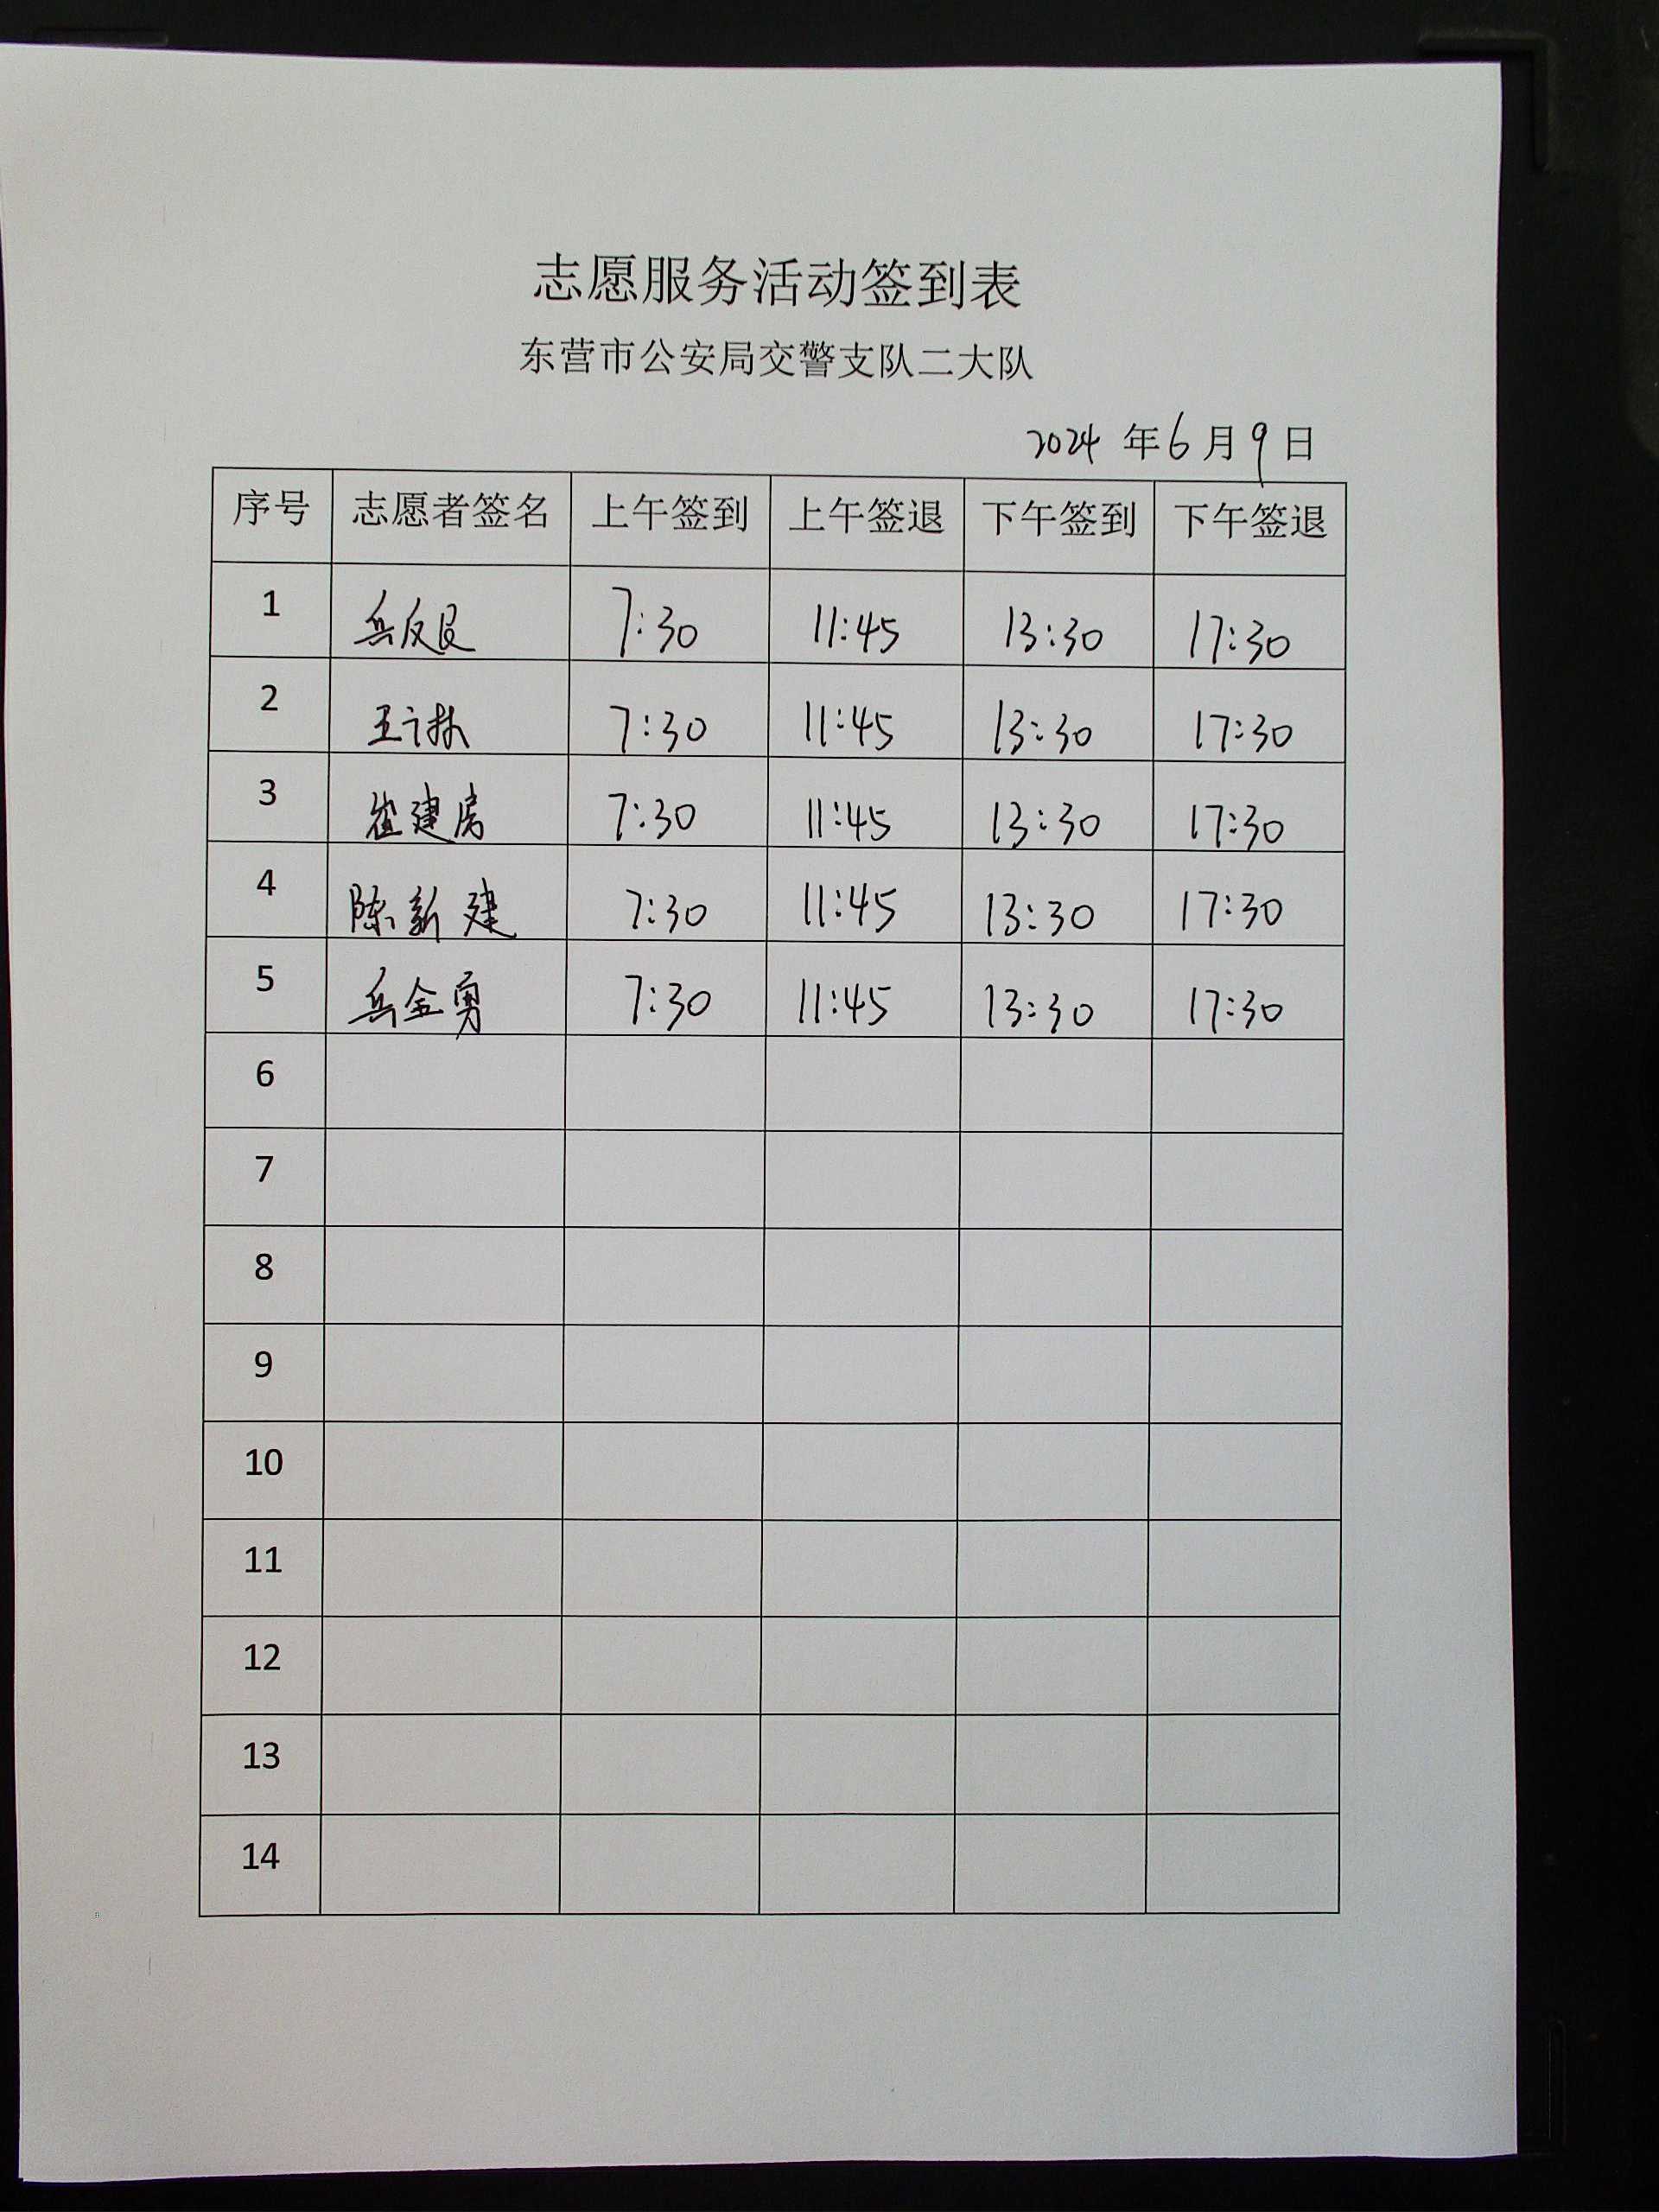 志愿服务活动签到表
东营市公安局交警支队二大队
2024 年 6 月 9 日
序号 志愿者签名 上午签到 上午签退 下午签到 下午签退
1 7:30 11:45 13:30 17:30
2 王 7:30 11:45 13:30 17:30
3 崔建房 7:30 11:45 13:30 17:30
4 陈新建 7:30 11:45 13:30 17:30
5 兵金勇 7:30 11:45 13:30 17:30
6
7
8
9
10
11
12
13
14